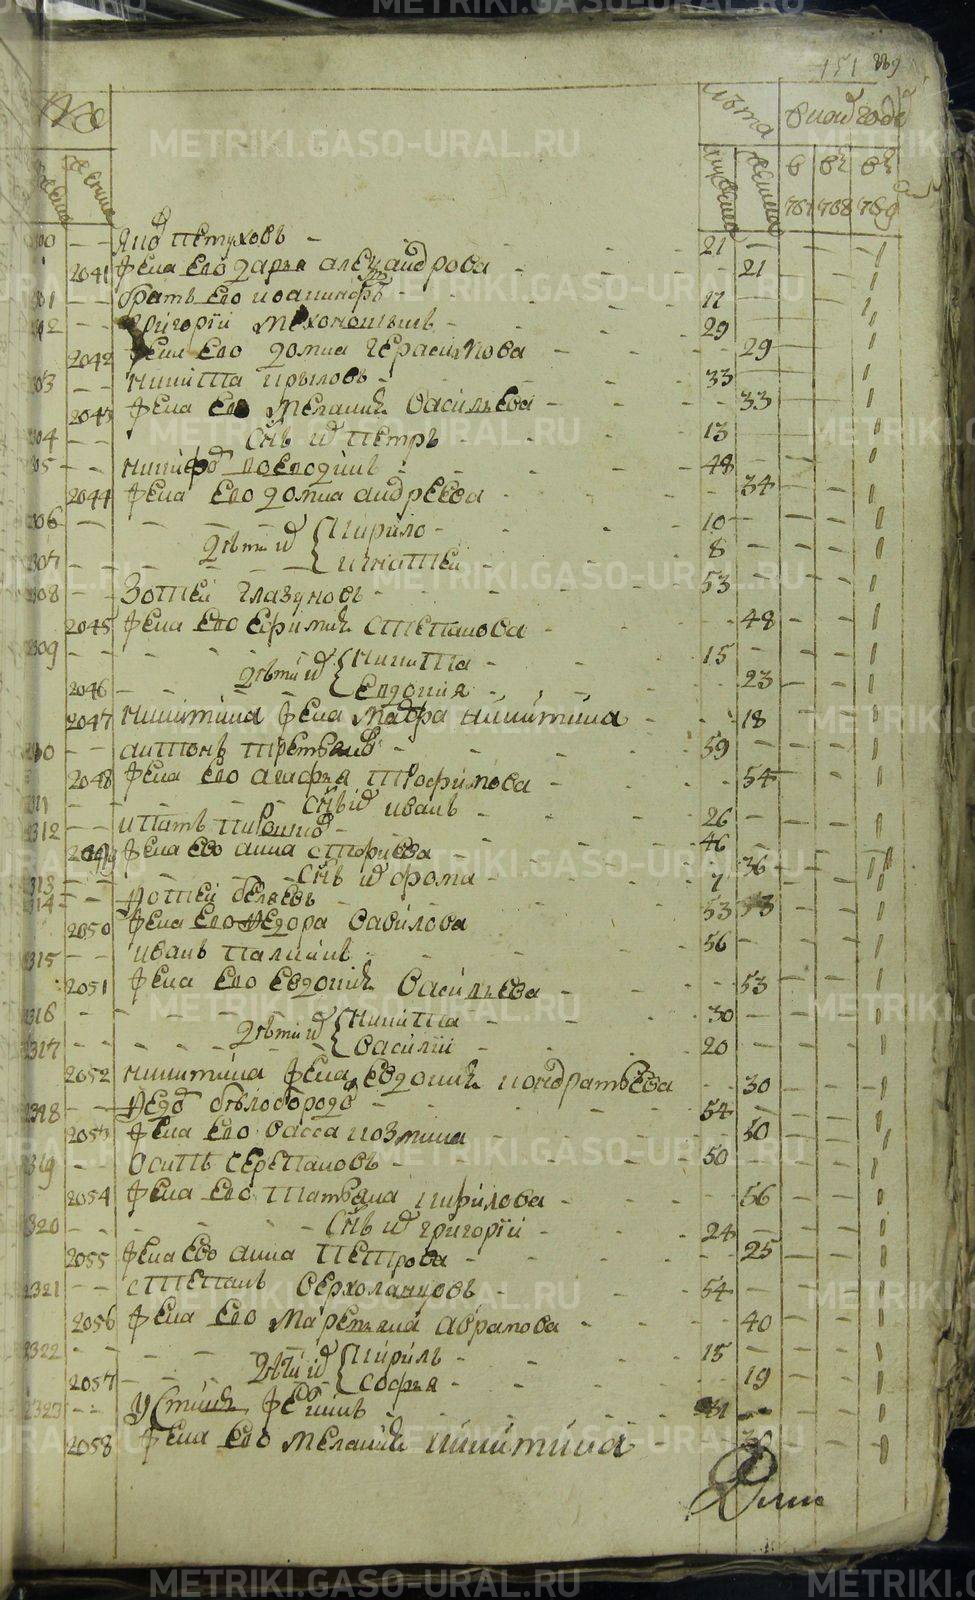 151
№
лѣта
в коих годѣхъ
мужеска
женска
в 787
въ 788
въ 789
Яковъ Петуховъ 21
2041 Жена Ево Дарья Александрова 21
братъ Ево Никифоръ 17
Григорий Мехоношинъ 29
2042 Жена Ево Домна Герасимова 29
Никита Крыловъ 33
2043 Жена Ево Мелания Васильева 33
Сынъ их Петръ 13
Никифоръ 48
2044 Жена Ево Домна Андреева 34
Дѣти их Кирило 10
Игнатей 8
Зотей Глазуновъ 53
2045 Жена Ево Ефимия Степанова 48
Дѣти их Никита 15
2046 Евдокия 23
2047 Никитина Жена Мавра Никитина 18
Антонъ Третьяковъ 59
2048 Жена Ево Агафья Трофимова 54
Сынъ их Иванъ 26
2312 Ипатъ 46
2049 Жена Ево Анна 36
2313 Сынъ их Фома 7
Фотей Беляевъ 53
2050 Жена Ево Федора Вавилова 53
2315 Иванъ Палкинъ 56
2051 Жена Ево Евдокия Васильева 53
2316 Дѣти их Никита 30
2317 Василий 20
2052 Никитина Жена Евдокия Кондратьева 30
2318 Федоръ Бѣлобородовъ 54
2053 Жена Ево Васса Козмина 50
2319 Осипъ Черепановъ 50
2054 Жена Ево Татьяна Кирилова 56
2320 Сынъ их Григорий 24
2055 Жена Ево Анна Петрова 25
2321 Степанъ Верхоланцовъ 54
2056 Жена Ево Маремьяна Аврамова 40
2322 Дѣти их Кирилъ 15
2057 Софья 19
2323 Устинъ 31
2058 Жена Ево Мелания Никитина